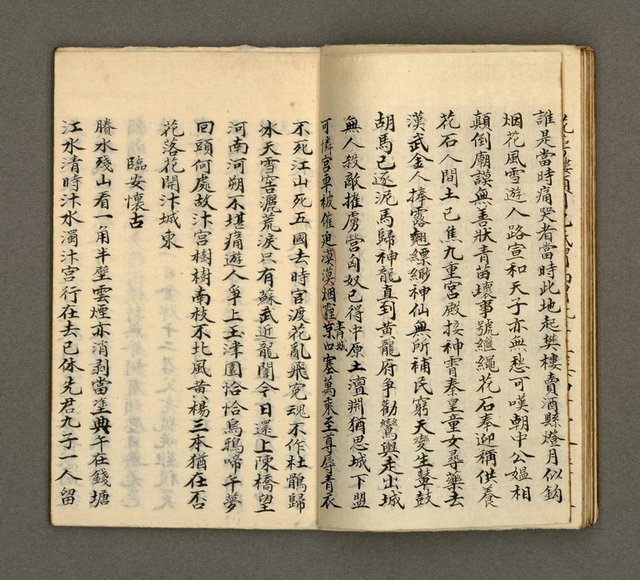 誰是當時痛哭者當時此地起樊樓賣酒縣燈月似鈎
烟花風雪遊人路宣和天子亦無愁可嘆朝中公媼相
顛倒廟謨無善狀青苗壞事號繼繩花石奉迎稱供養
花石人間土已焦九重宮殿接神霄秦皇童女尋藥去
漢武金人捧露翹縹緲神仙無所補民窮天變生鼙鼓
胡馬已逐泥馬歸神龍直到黃龍府爭勸鑾輿走出城
無人殺敵推虜營匈奴已得中原土澶淵猶思城下盟
可憐宮車被催迫漠漠烟霾青城口塞萬乘至尊辱青衣
不死江山死五國去時宮渡花亂飛冤魂不作杜鵑歸
冰天雪窖灑荒淚只有蘇武近龍闈令日還上陳橋望
河南河朔不堪痛遊人爭上玉津園恰恰烏鴉啼午夢
回頭何處故汴宮樹樹南枝不北風黃楊三本猶在否
花落花開汴城東
臨安懷古
勝水殘山看一角半壁雲煙亦消剥當塗典午在錢塘
江水清時汴水濁汴宮行在去已休先君九子一人留